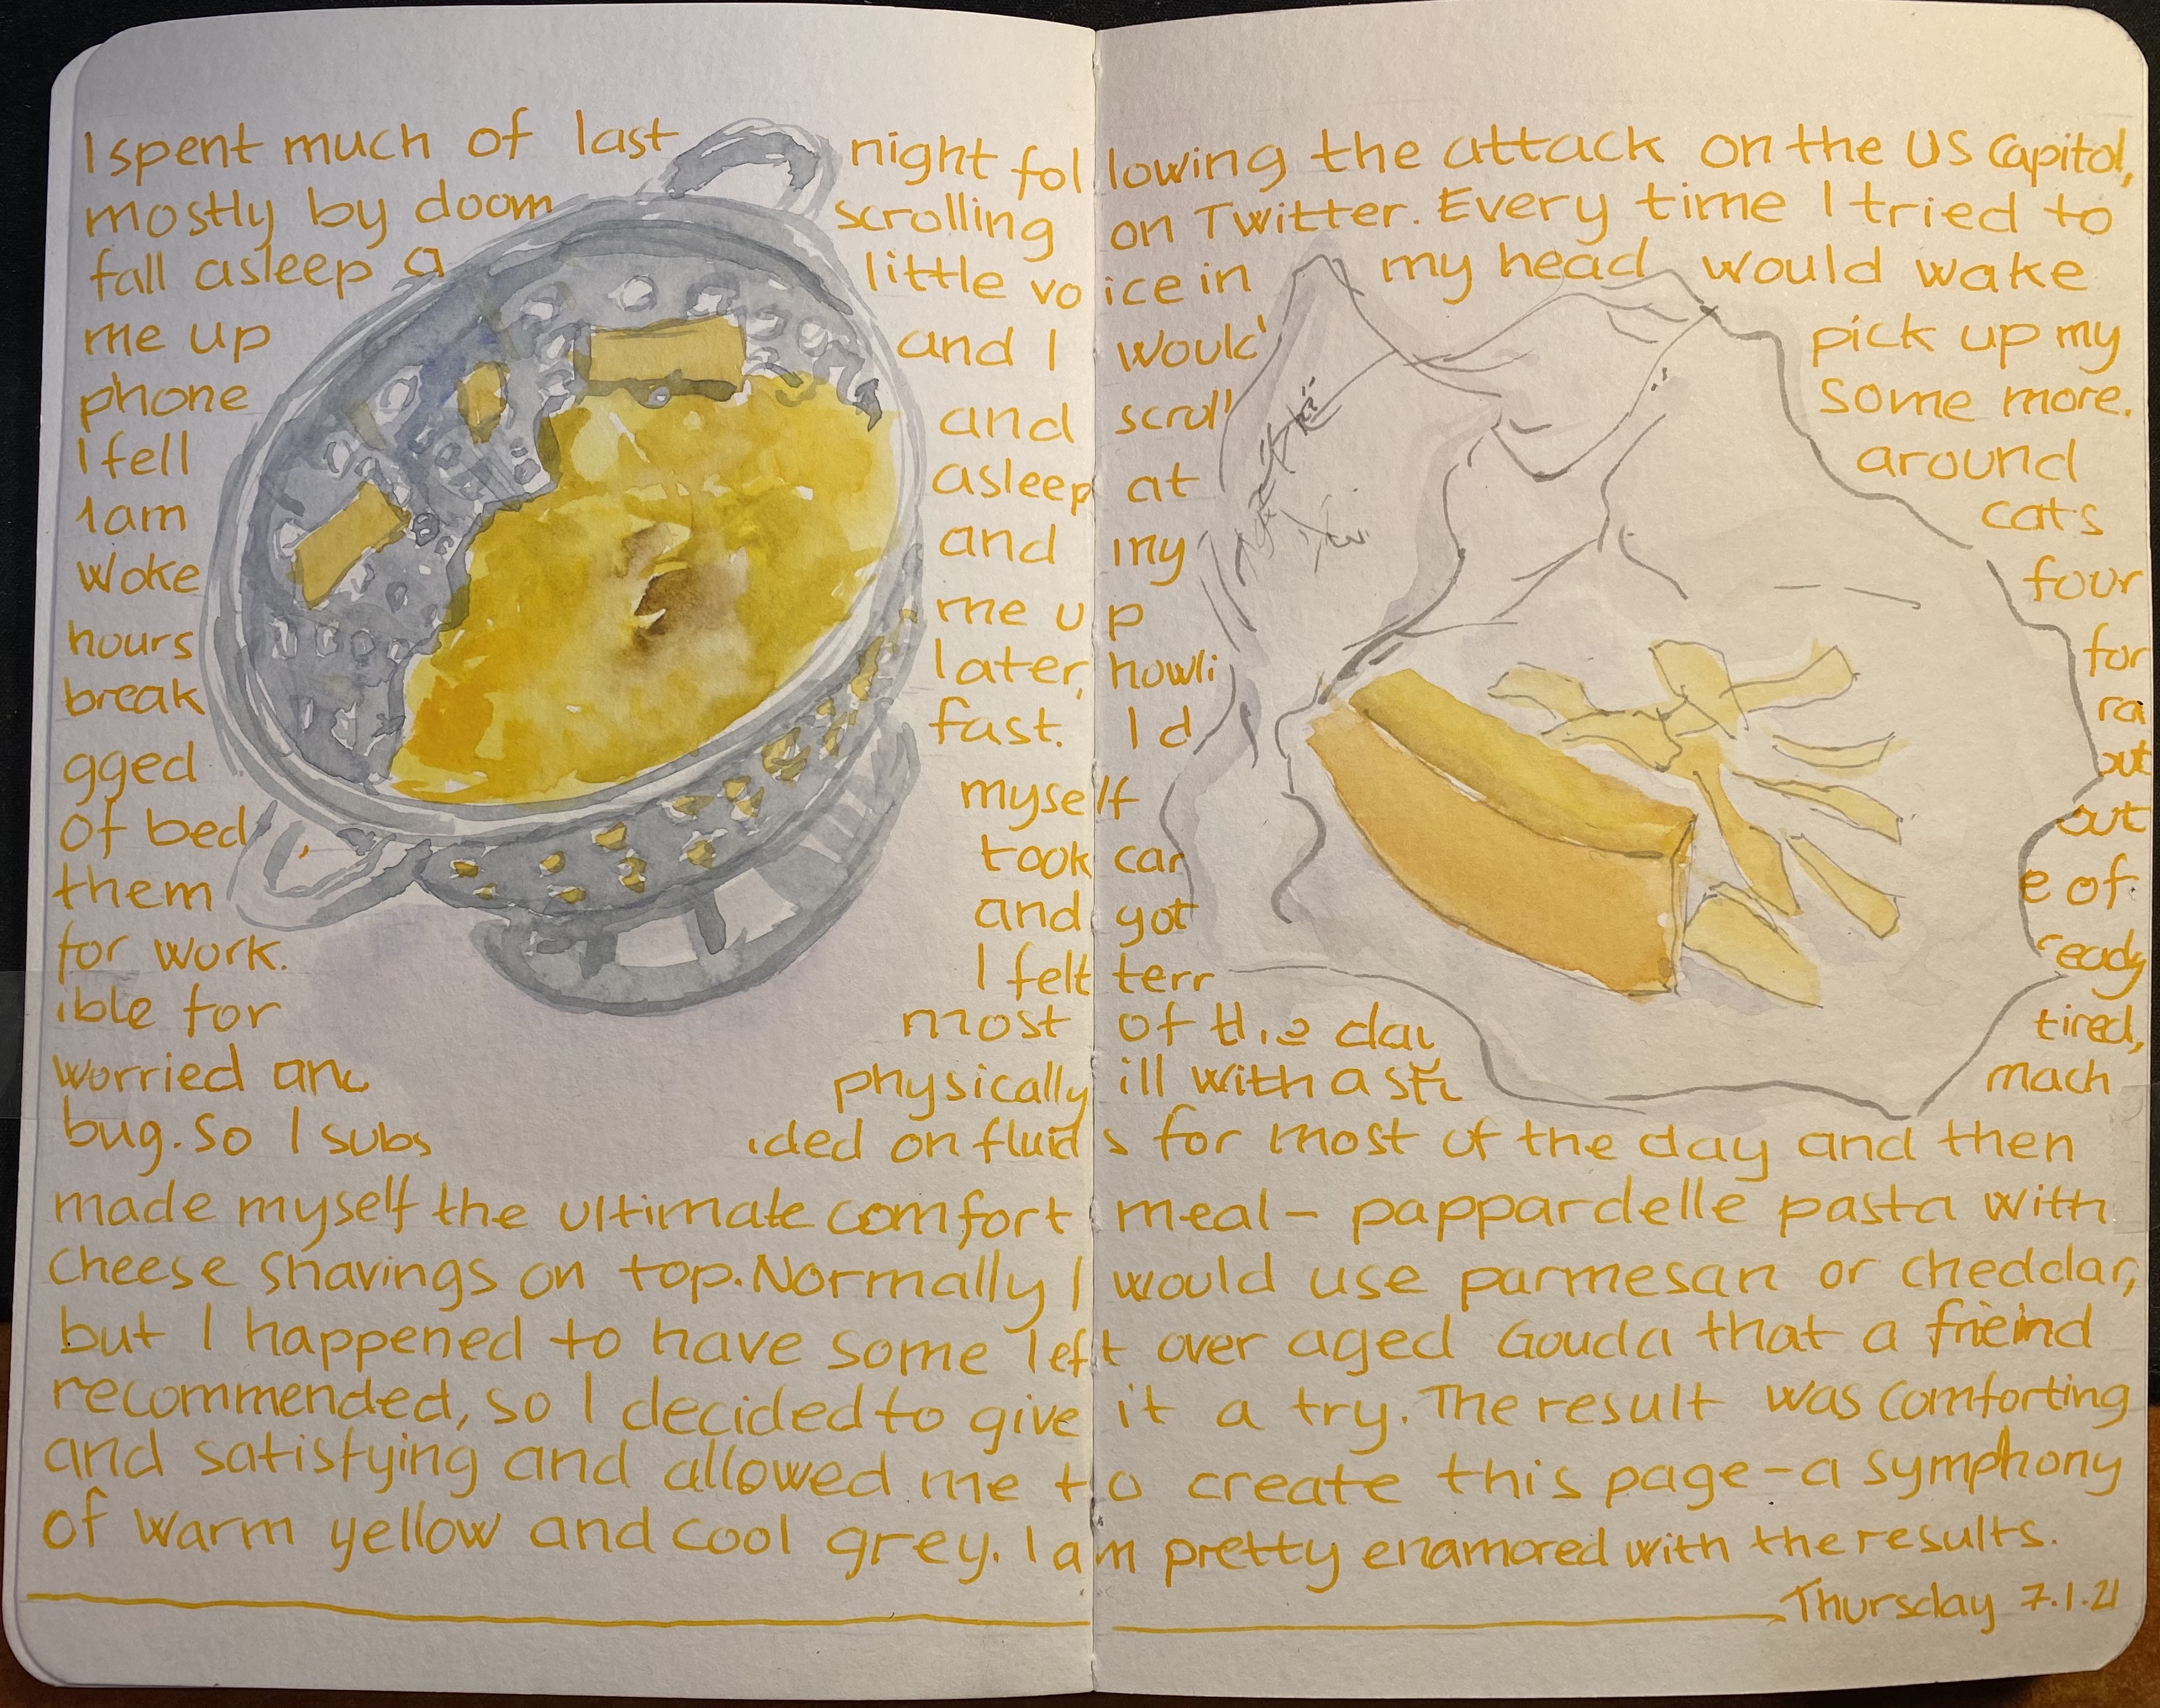 I spent much of last night following the attack on the US Capitol,
mostly by doom scrolling on Twitter. Every time I tried to
fall asleep a little voice in my head would wake
me up and I would pick up my
phone and scroll some more.
I fell asleep at around
1am and my cats
woke me up four
hours later, howli for
break fast. I d ra
gged myself out
of bed took car e of
them and got ready
for work. I felt terr
ible for most of the day tired,
worried and physically ill with a sto mach
bug. So I subs ided on fluids for most of the day and then
made myself the ultimate comfort meal - pappardelle pasta with
cheese shavings on top. Normally I would use parmesan or cheddar,
but I happened to have some left over aged Gouda that a freind
recommended, so I decided to give it a try. The result was comforting
and satisfying and allowed me to create this page - a symphony
of warm yellow and cool grey. I am pretty enamored with the results.
Thursday 7.1.21